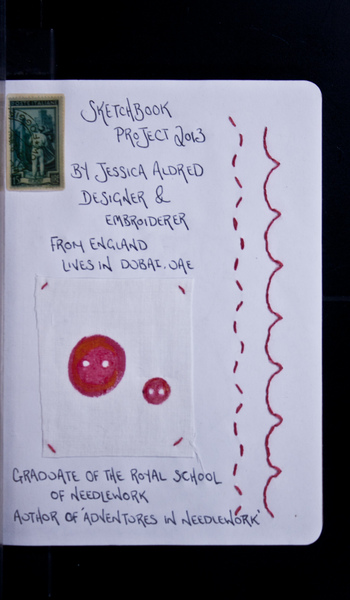 POSTE ITALIANE
SKETCHBOOK
PROJECT 2013
BY JESSICA ALDRED
DESIGNER &
EMBROIDERER
FROM ENGLAND
LIVES IN DUBAI, UAE
GRADUATE OF THE ROYAL SCHOOL
OF NEEDLEWORK
AUTHOR OF 'ADVENTURES IN NEEDLEWORK'